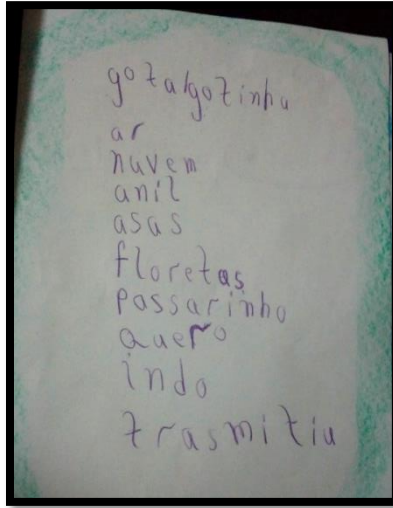 gotalgotinha
ar
nuvem
anil
asas
floretas
passarinho
quero
indo
trasmitiu